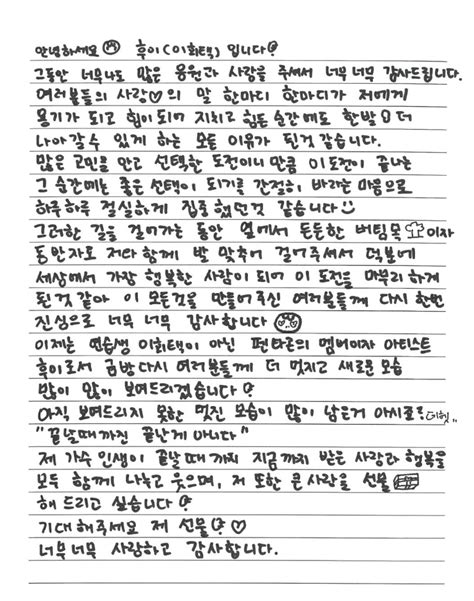 안녕하세요 후이(이회택)입니다!
그동안 너무나도 많은 응원과 사랑을 주셔서 너무너무 감사드립니다.
여러분들의 사랑♡의 말 한마디 한마디가 저에게
용기가 되고 힘이 되어 지치고 힘든 순간에도 한발 더
나아갈 수 있게 하는 모든 이유가 된것 같습니다.
많은 고민을 안고 선택한 도전이니 만큼 이 도전이 끝나는
그 순간에는 좋은 선택이 되기를 간절히 바라는 마음으로
하루하루 절실하게 집중했던것 같습니다
그러한 길을 걸어가는 동안 옆에서 든든한 버팀목 이자
동반자로 저와 함께 발 맞추어 걸어주셔서 덕분에
세상에서 가장 행복한 사람이 되어 이 도전을 마무리 하게
된것 같아 이 모든것을 만들어주신 여러분들께 다시 한번
진심으로 너무 너무 감사합니다
이제는 연습생 이회택이 아닌 펜타곤의 멤버이자 아티스트
후이로서 금방 다시 여러분들께 더 멋지고 새로운 모습
많이 많이 보여드리겠습니다!
아직 보여드리지 못한 멋진 모습이 많이 남은거 아시죠?
"끝날때까진 끝난게 아니다"
제 가수 인생이 끝날 때 까지 지금까지 받은 사랑과 행복을
모두 함께 나누고 웃으며, 저 또한 큰 사랑을 선물
해 드리고 싶습니다!
기대해주세요 제 선물!♡
너무너무 사랑하고 감사합니다.